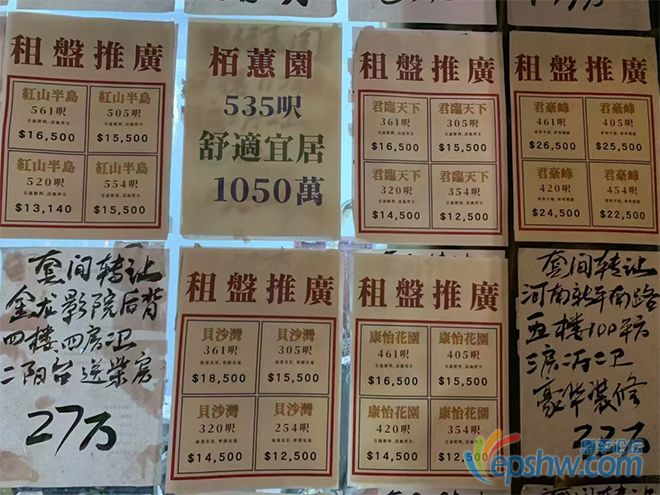 租盤推廣
紅山半島
561呎
$16,500
紅山半島
505呎
$15,500
紅山半島
520呎
$13,140
紅山半島
554呎
$15,500
栢蕙園
535呎
舒適宜居
1050萬
租盤推廣
君臨天下
361呎
$16,500
君臨天下
305呎
$15,500
君臨天下
320呎
$14,500
君臨天下
354呎
$12,500
租盤推廣
君豪峰
461呎
$26,500
君豪峰
405呎
$25,500
君豪峰
420呎
$24,500
君豪峰
454呎
$22,500
套间转让
金龙影院后背
四楼四房二卫
二阳台送柴房
27万
租盤推廣
貝沙灣
361呎
$18,500
貝沙灣
305呎
$15,500
貝沙灣
320呎
$14,500
貝沙灣
254呎
$12,500
租盤推廣
康怡花園
461呎
$16,500
康怡花園
405呎
$15,500
康怡花園
420呎
$14,500
康怡花園
354呎
$12,500
套间转让
河南新年南路
五楼100平方
豪华装修
epshw.com